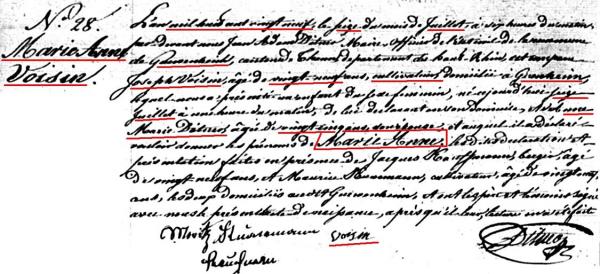 N.º 28.
Marie Anne
Voisin.
L'an mil huit cent vingt neuf, le seize du mois de Juillet, à six heures du matin,
par devant nous Jean Adam Ditner Maire, Officier de l'état civil de la commune
de Guewenheim, canton de Thann département du haut Rhin, est comparu
Joseph Voisin, âgé de vingt neuf ans, cultivateur domicilié à Guewenheim,
lequel nous a présenté un enfant du sexe féminin, né aujourd'hui seize
Juillet à une heure du matin, de lui déclarant en son Domicile, et de
Marie Ditner âgée de vingt cinq ans son épouse, et auquel il a déclaré
vouloir donner les prénoms de Marie Anne, lesdites déclaration et
présentation faites en présence de Jacques berger, âgé
de vingt neuf ans, et Maurice cultivateur, âgé de vingt ans,
tous deux domiciliés audit Guewenheim, et ont le père et témoins signé
avec nous le présent acte de naissance, après qu'il leur lecture en a été fait
Moritz
Voisin
Ditner